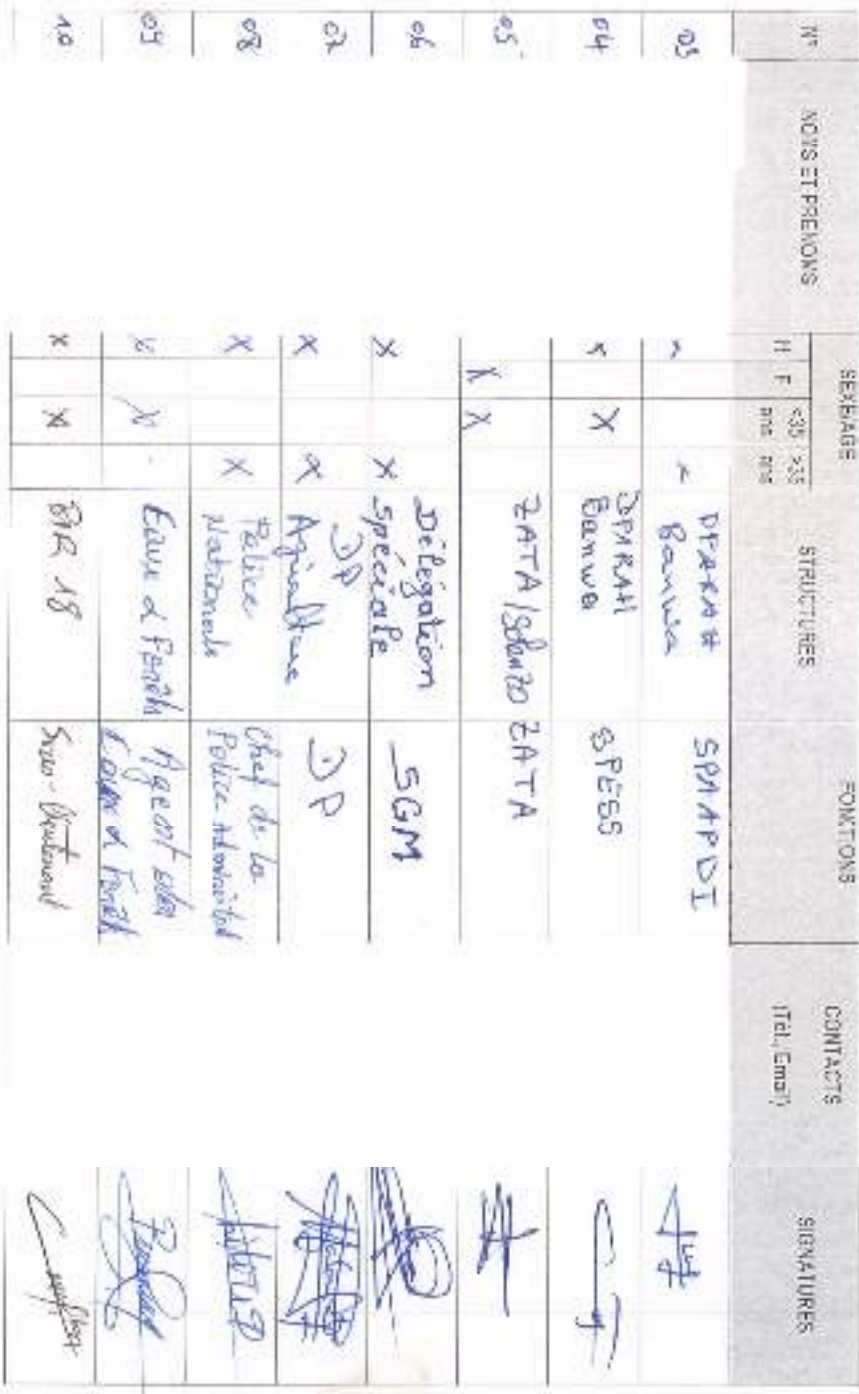 N° NOMS ET PRENOMS SEXE/AGE STRUCTURES FONCTIONS CONTACTS SIGNATURES
H F <35 ans >35 ans (Tél., Email)
03 x x DPARAH Banwa SPAAPDI
04 x X DPARAH Banwa SPESS
05 X X ZATA/Solenzo ZATA
06 X X Délégation Spéciale SGM
07 X X DP Agriculture DP
08 X X Police Nationale Chef de la Police
09 X X Eaux et Forêts Agent des Eaux et Forêts
10 X X BIR 18 Sous-Lieutenant